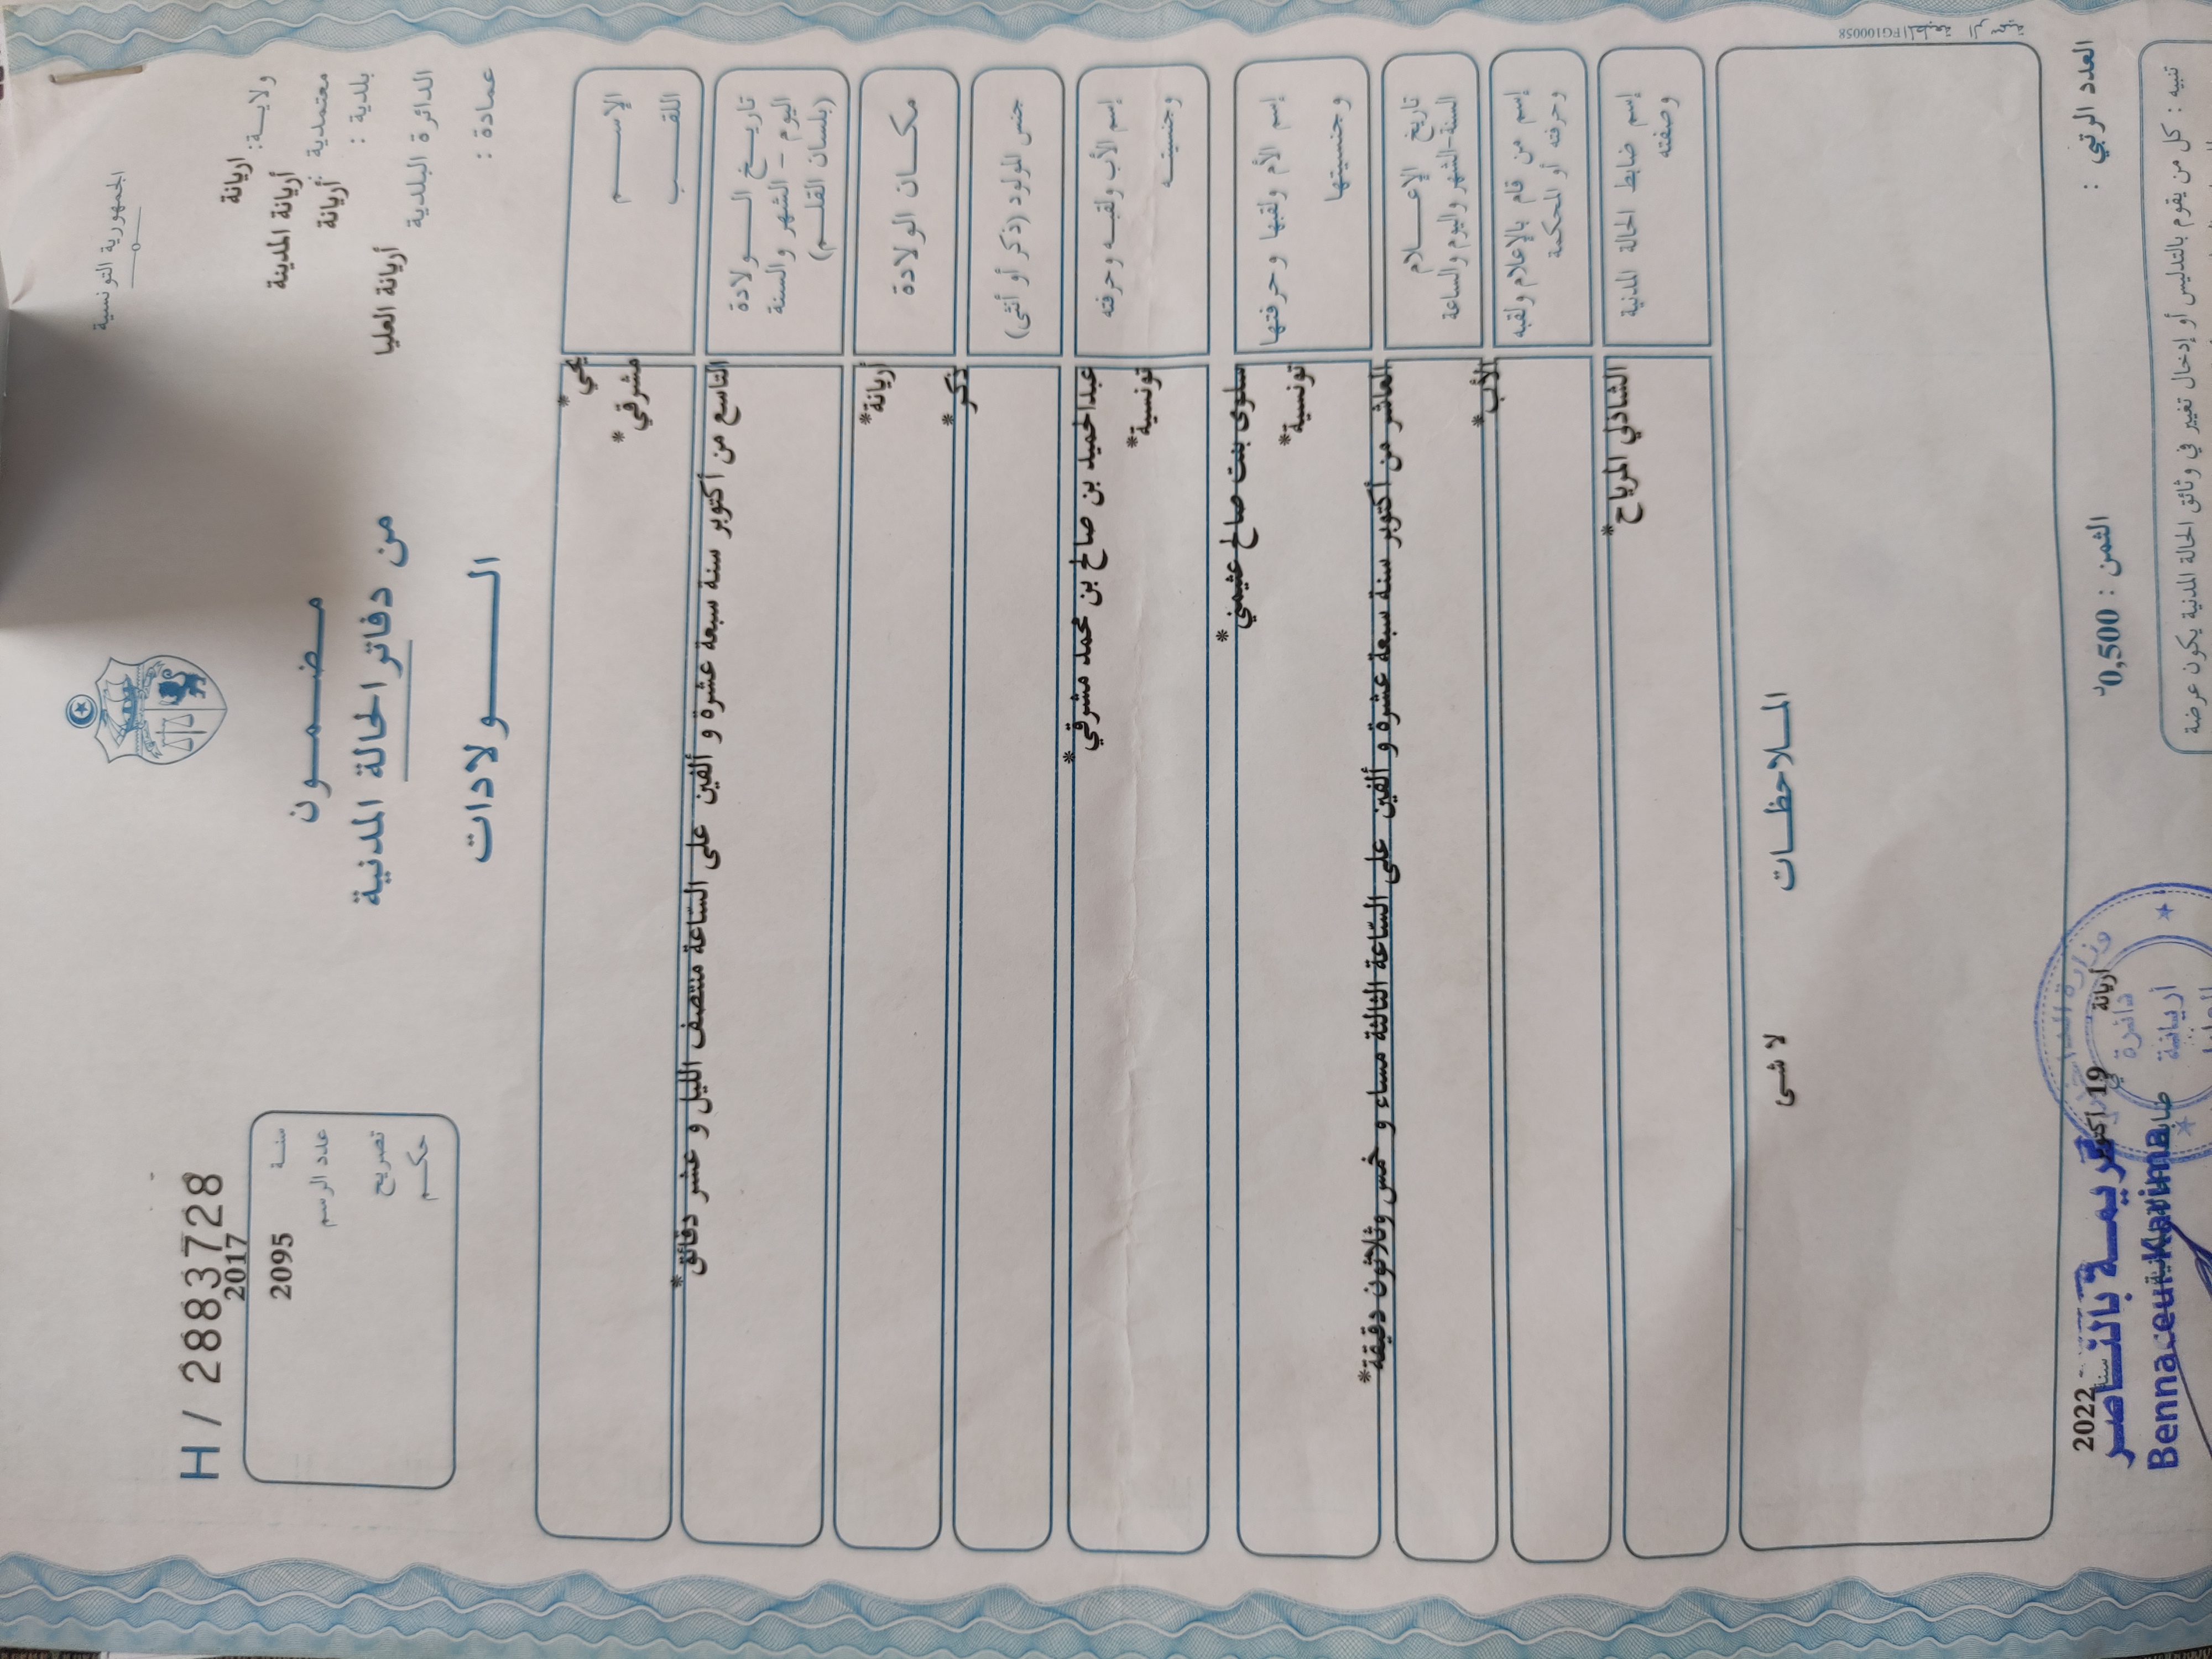 الجمهورية التونسية
ولايــة: اريانة
معتمدية : أريانة المدينة
بلدية : أريانة
الدائرة البلدية
أريانة العليا
عمادة :
مـضـمـــون
من دفاتر الحالة المدنية
الـــــولادات
H / 28837728
2017
سنـة
2095
عدد الرسم
تصريح
حكـم
الإســـــم
يحي *
اللقــــب
مشرقي *
تاريــخ الـــــولادة
اليوم - الشهر والسنة
(بلسان القلــم)
التاسع من أكتوبر سنة سبعة عشرة و ألفين على الساعة منتصف الليل و عشر دقائق *
مكـــان الولادة
أريانة*
جنس المولود (ذكر أو أنثى)
ذكر *
إسم الأب ولقبــه وحرفته
وجنسيتــه
عبدالحميد بن صالح بن محمد مشرقي *
تونسية*
إسم الأم ولقبها وحرفتها
وجنسيتها
سلوى بنت صالح عثيمني *
تونسية*
تاريخ الإعــــلام
السنة-الشهر واليوم والساعة
العاشر من أكتوبر سنة سبعة عشرة و ألفين على الساعة الثالثة مساء و خمس وثلاثون دقيقة*
إسم من قام بالإعلام ولقبه
وحرفته أو المحكمة
الأب *
إسم ضابط الحالة المدنية
وصفته
الشاذلي المرياح*
المــلاحظــات
لا شئ
المطبعة الرسمية
FG100058
العدد الرتبي :
الثمن : 0,500د
أريانة في 19 أكتوبر سنة 2022
وزارة
دائرة
أريانة
كريمــة بالنــاصر
Bennaceur Karima
تنبيه : كل من يقوم بالتدليس أو إدخال تغيير في وثائق الحالة المدنية يكون عرضة